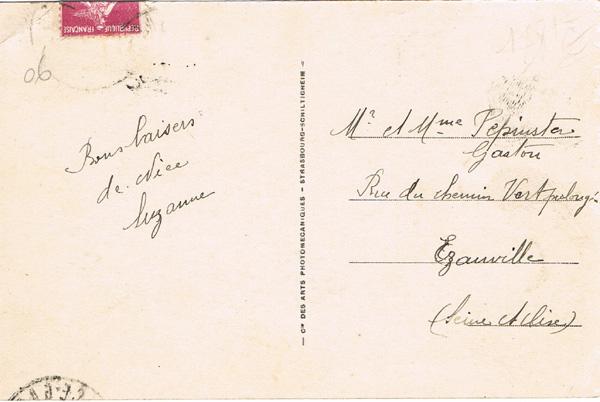 REPUBLIQUE FRANÇAISE
06
Bons baisers
de Nice
Suzanne
— Cie DES ARTS PHOTOMECANIQUES - STRASBOURG-SCHILTIGHEIM —
Mr et Mme Pepinster
Gaston
Rue du chemin Vert prolongé
Ezanville
(Seine et Oise)